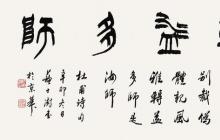 益多師
別裁偽
體親風
雅轉益
多師是
汝師
杜甫詩句
辛卯六月
於京華